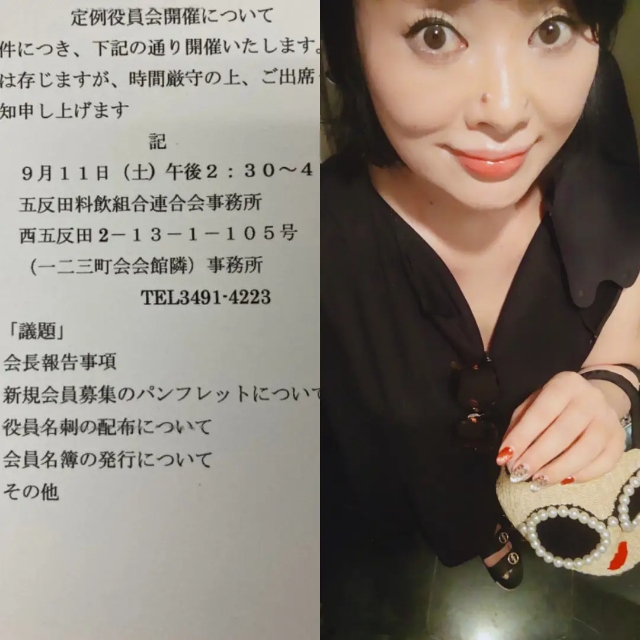 定例役員会開催について
件につき、下記の通り開催いたします。
は存じますが、時間厳守の上、ご出席
知申し上げます
記
9月11日（土）午後2：30～4
五反田料飲組合連合会事務所
西五反田2－13－1－105号
（一二三町会会館隣）事務所
TEL3491-4223
「議題」
会長報告事項
新規会員募集のパンフレットについて
役員名刺の配布について
会員名簿の発行について
その他